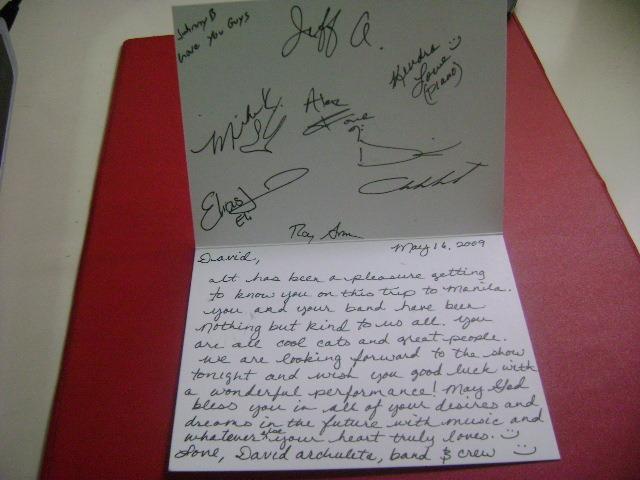 Johnny B
Love You Guys
Jeff A.
Kendra
Lowe
(piano)
Michael
Alex
Elias
Eli
Ray
David,
May 16, 2009
It has been a pleasure getting
to know you on this trip to Manila.
you and your band have been
nothing but kind to us all. you
are all cool cats and great people.
we are looking forward to the show
tonight and wish you good luck with
a wonderful performance! May God
bless you in all of your desires and
dreams in the future with music and
whatever else your heart truly loves. :)
Love, David archuleta, band & crew :)